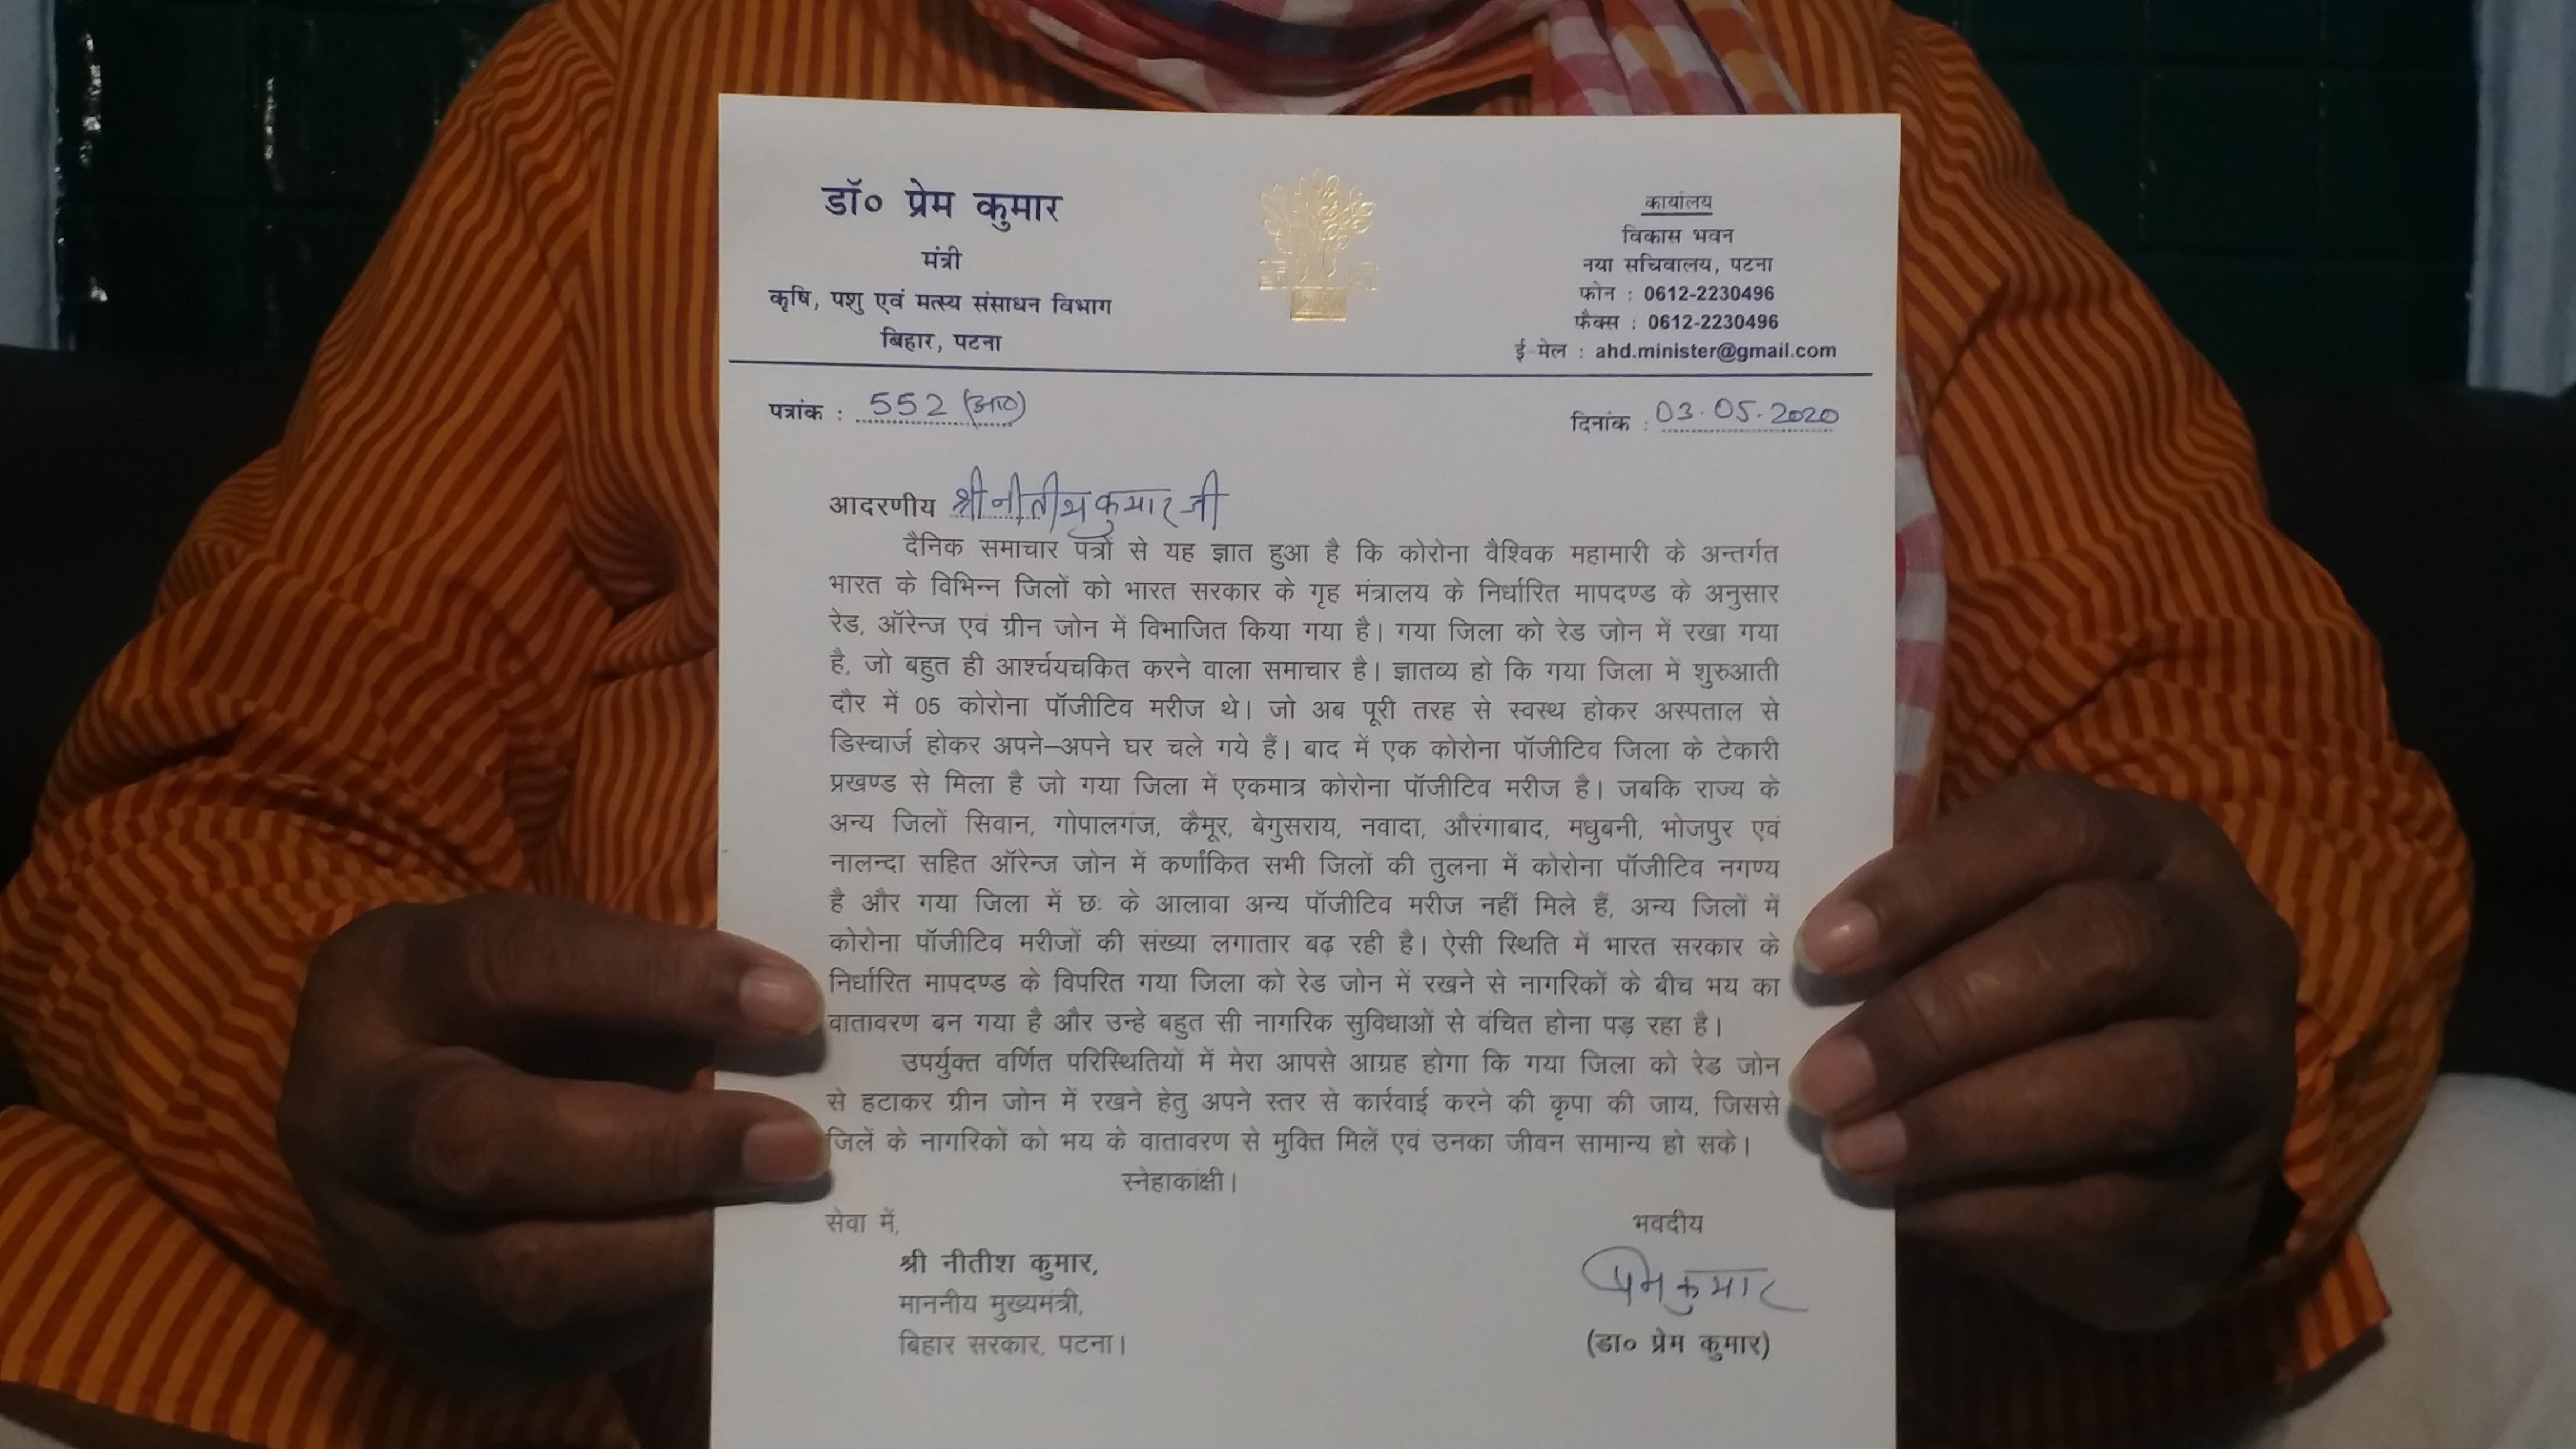 डॉ० प्रेम कुमार
मंत्री
कृषि, पशु एवं मत्स्य संसाधन विभाग
बिहार, पटना
कार्यालय
विकास भवन
नया सचिवालय, पटना
फोन : 0612-2230496
फैक्स : 0612-2230496
ई-मेल : ahd.minister@gmail.com
पत्रांक : 552 (आ०)
दिनांक : 03.05.2020
आदरणीय श्री नीतीश कुमार जी
दैनिक समाचार पत्रों से यह ज्ञात हुआ है कि कोरोना वैश्विक महामारी के अन्तर्गत
भारत के विभिन्न जिलों को भारत सरकार के गृह मंत्रालय के निर्धारित मापदण्ड के अनुसार
रेड, ऑरेन्ज एवं ग्रीन जोन में विभाजित किया गया है। गया जिला को रेड जोन में रखा गया
है, जो बहुत ही आर्श्चयचकित करने वाला समाचार है। ज्ञातव्य हो कि गया जिला में शुरुआती
दौर में 05 कोरोना पॉजीटिव मरीज थे। जो अब पूरी तरह से स्वस्थ होकर अस्पताल से
डिस्चार्ज होकर अपने–अपने घर चले गये हैं। बाद में एक कोरोना पॉजीटिव जिला के टेकारी
प्रखण्ड से मिला है जो गया जिला में एकमात्र कोरोना पॉजीटिव मरीज है। जबकि राज्य के
अन्य जिलों सिवान, गोपालगंज, कैमूर, बेगुसराय, नवादा, औरंगाबाद, मधुबनी, भोजपुर एवं
नालन्दा सहित ऑरेन्ज जोन में कर्णांकित सभी जिलों की तुलना में कोरोना पॉजीटिव नगण्य
है और गया जिला में छः के आलावा अन्य पॉजीटिव मरीज नहीं मिले हैं, अन्य जिलों में
कोरोना पॉजीटिव मरीजों की संख्या लगातार बढ़ रही है। ऐसी स्थिति में भारत सरकार के
निर्धारित मापदण्ड के विपरित गया जिला को रेड जोन में रखने से नागरिकों के बीच भय का
वातावरण बन गया है और उन्हे बहुत सी नागरिक सुविधाओं से वंचित होना पड़ रहा है।
उपर्युक्त वर्णित परिस्थितियों में मेरा आपसे आग्रह होगा कि गया जिला को रेड जोन
से हटाकर ग्रीन जोन में रखने हेतु अपने स्तर से कार्रवाई करने की कृपा की जाय, जिससे
जिलें के नागरिकों को भय के वातावरण से मुक्ति मिलें एवं उनका जीवन सामान्य हो सके।
स्नेहाकांक्षी।
सेवा में,
श्री नीतीश कुमार,
माननीय मुख्यमंत्री,
बिहार सरकार, पटना।
भवदीय
प्रेम कुमार
(डा० प्रेम कुमार)